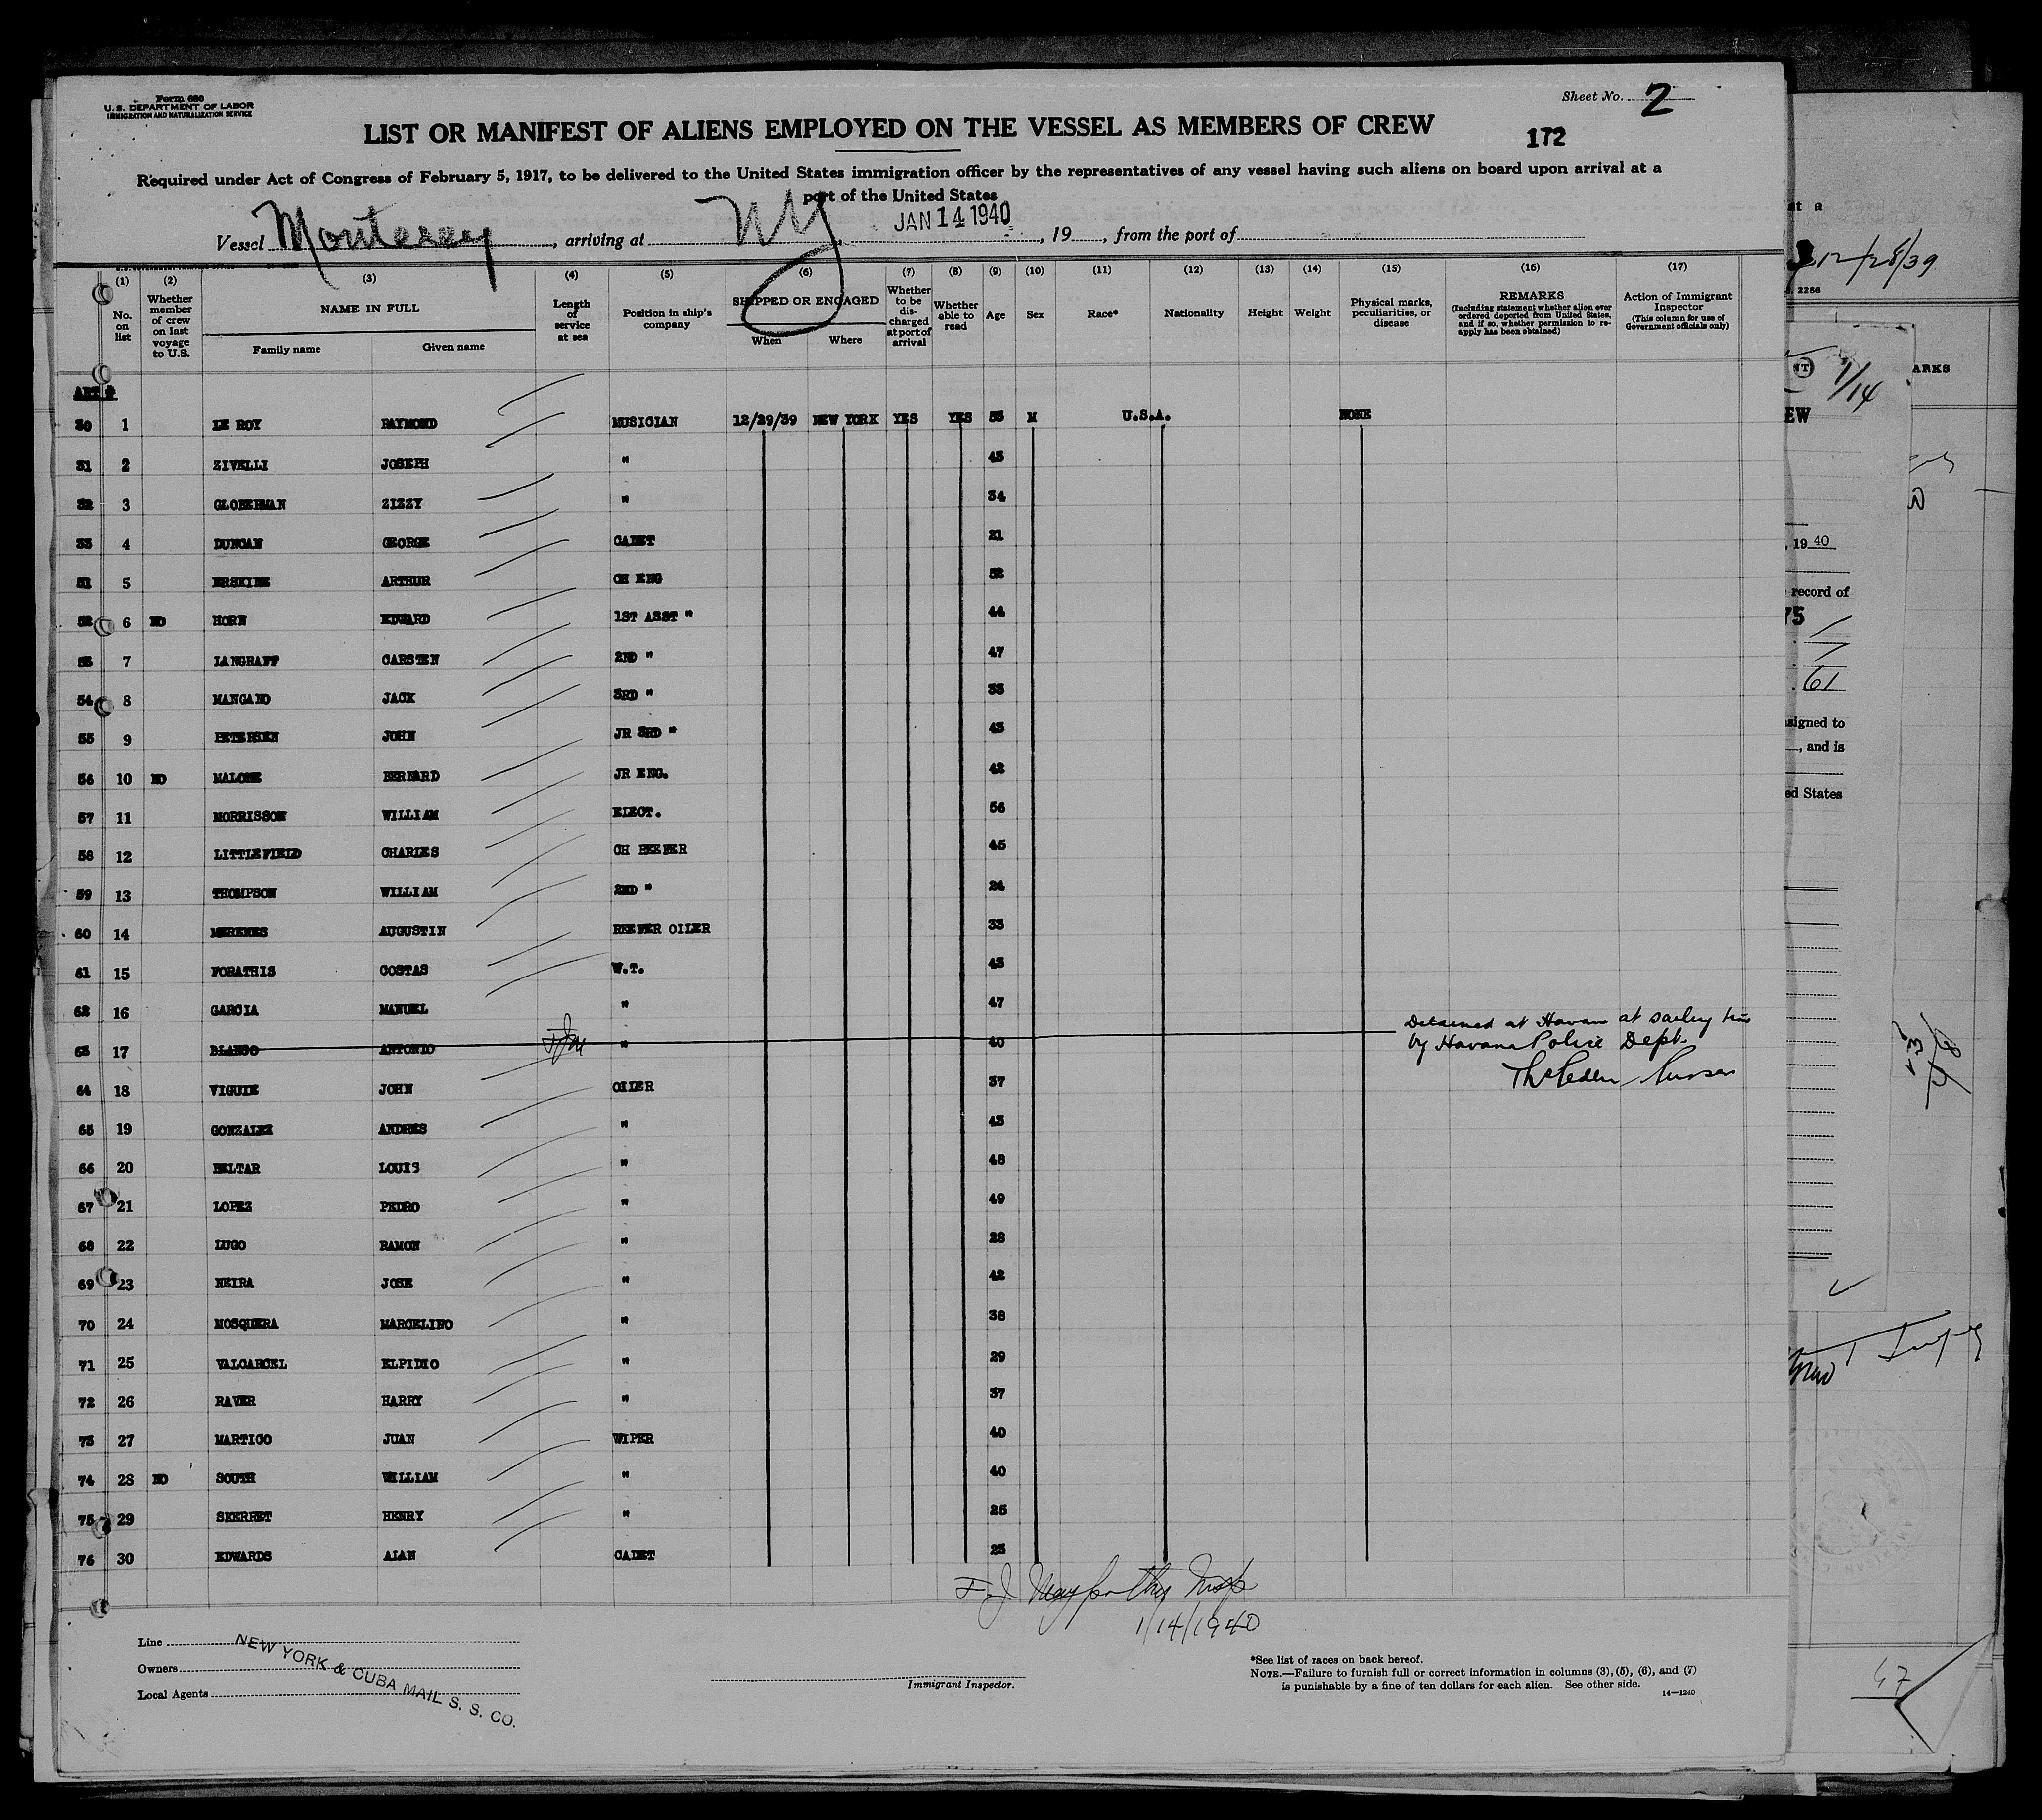 Form 680
U. S. DEPARTMENT OF LABOR
IMMIGRATION AND NATURALIZATION SERVICE
Sheet No. 2
LIST OR MANIFEST OF ALIENS EMPLOYED ON THE VESSEL AS MEMBERS OF CREW
172
Required under Act of Congress of February 5, 1917, to be delivered to the United States immigration officer by the representatives of any vessel having such aliens on board upon arrival at a
port of the United States
Vessel Monterey, arriving at NY, JAN 14 1940, 19, from the port of
(1) No. on list
(2) Whether member of crew on last voyage to U.S.
(3) NAME IN FULL Family name Given name
(4) Length of service at sea
(5) Position in ship's company
(6) SHIPPED OR ENGAGED When Where
(7) Whether to be discharged at port of arrival
(8) Whether able to read
(9) Age
(10) Sex
(11) Race*
(12) Nationality
(13) Height
(14) Weight
(15) Physical marks, peculiarities, or disease
(16) REMARKS (Including statement whether alien ever ordered deported from United States, and if so, whether permission to reapply has been obtained)
(17) Action of Immigrant Inspector (This column for use of Government officials only)
30 1 LE ROY RAYMOND MUSICIAN 12/29/39 NEW YORK YES YES 53 M U.S.A. NONE
31 2 ZIVELLI JOSEPH " 43
32 3 GLOBERMAN ZIZZY " 34
33 4 DUNCAN GEORGE CADET 21
51 5 ERSKINE ARTHUR CH ENG 52
52 6 NO HORN EDWARD 1ST ASST " 44
53 7 LANGRAFF CARSTEN 2ND " 47
54 8 MANGANO JACK 3RD " 33
55 9 PETERSEN JOHN JR 3RD " 43
56 10 NO MALONE BERNARD JR ENG. 42
57 11 MORRISSON WILLIAM ELECT. 56
58 12 LITTLEFIELD CHARLES CH REEFER 45
59 13 THOMPSON WILLIAM 2ND " 24
60 14 MERENES AUGUSTIN REEFER OILER 33
61 15 FORATHIS COSTAS W.T. 43
62 16 GARCIA MANUEL " 47
63 17 BLANCO ANTONIO " 40 Detained at Havana at sailing time
by Havana Police Dept.
Purser
64 18 VIGUIE JOHN OILER 37
65 19 GONZALEZ ANDRES " 43
66 20 BELTAR LOUIS " 48
67 21 LOPEZ PEDRO " 49
68 22 LUGO RAMON " 28
69 23 NEIRA JOSE " 42
70 24 MOSQUERA MARCELINO " 38
71 25 VALCARCEL ELPIDIO " 29
72 26 RAVER HARRY " 37
73 27 MARTICO JUAN WIPER 40
74 28 NO SOUTH WILLIAM " 40
75 29 SKERRET HENRY " 25
76 30 EDWARDS ALAN CADET 23
1/14/1940
Line
Owners
Local Agents
NEW YORK & CUBA MAIL S. S. CO.
Immigrant Inspector.
*See list of races on back hereof.
NOTE.—Failure to furnish full or correct information in columns (3), (5), (6), and (7)
is punishable by a fine of ten dollars for each alien. See other side.
14—1240
at a
12/28/39
2286
ARKS
1/14
EW
, 19 40
record of
75
61
signed to
, and is
ed States
47